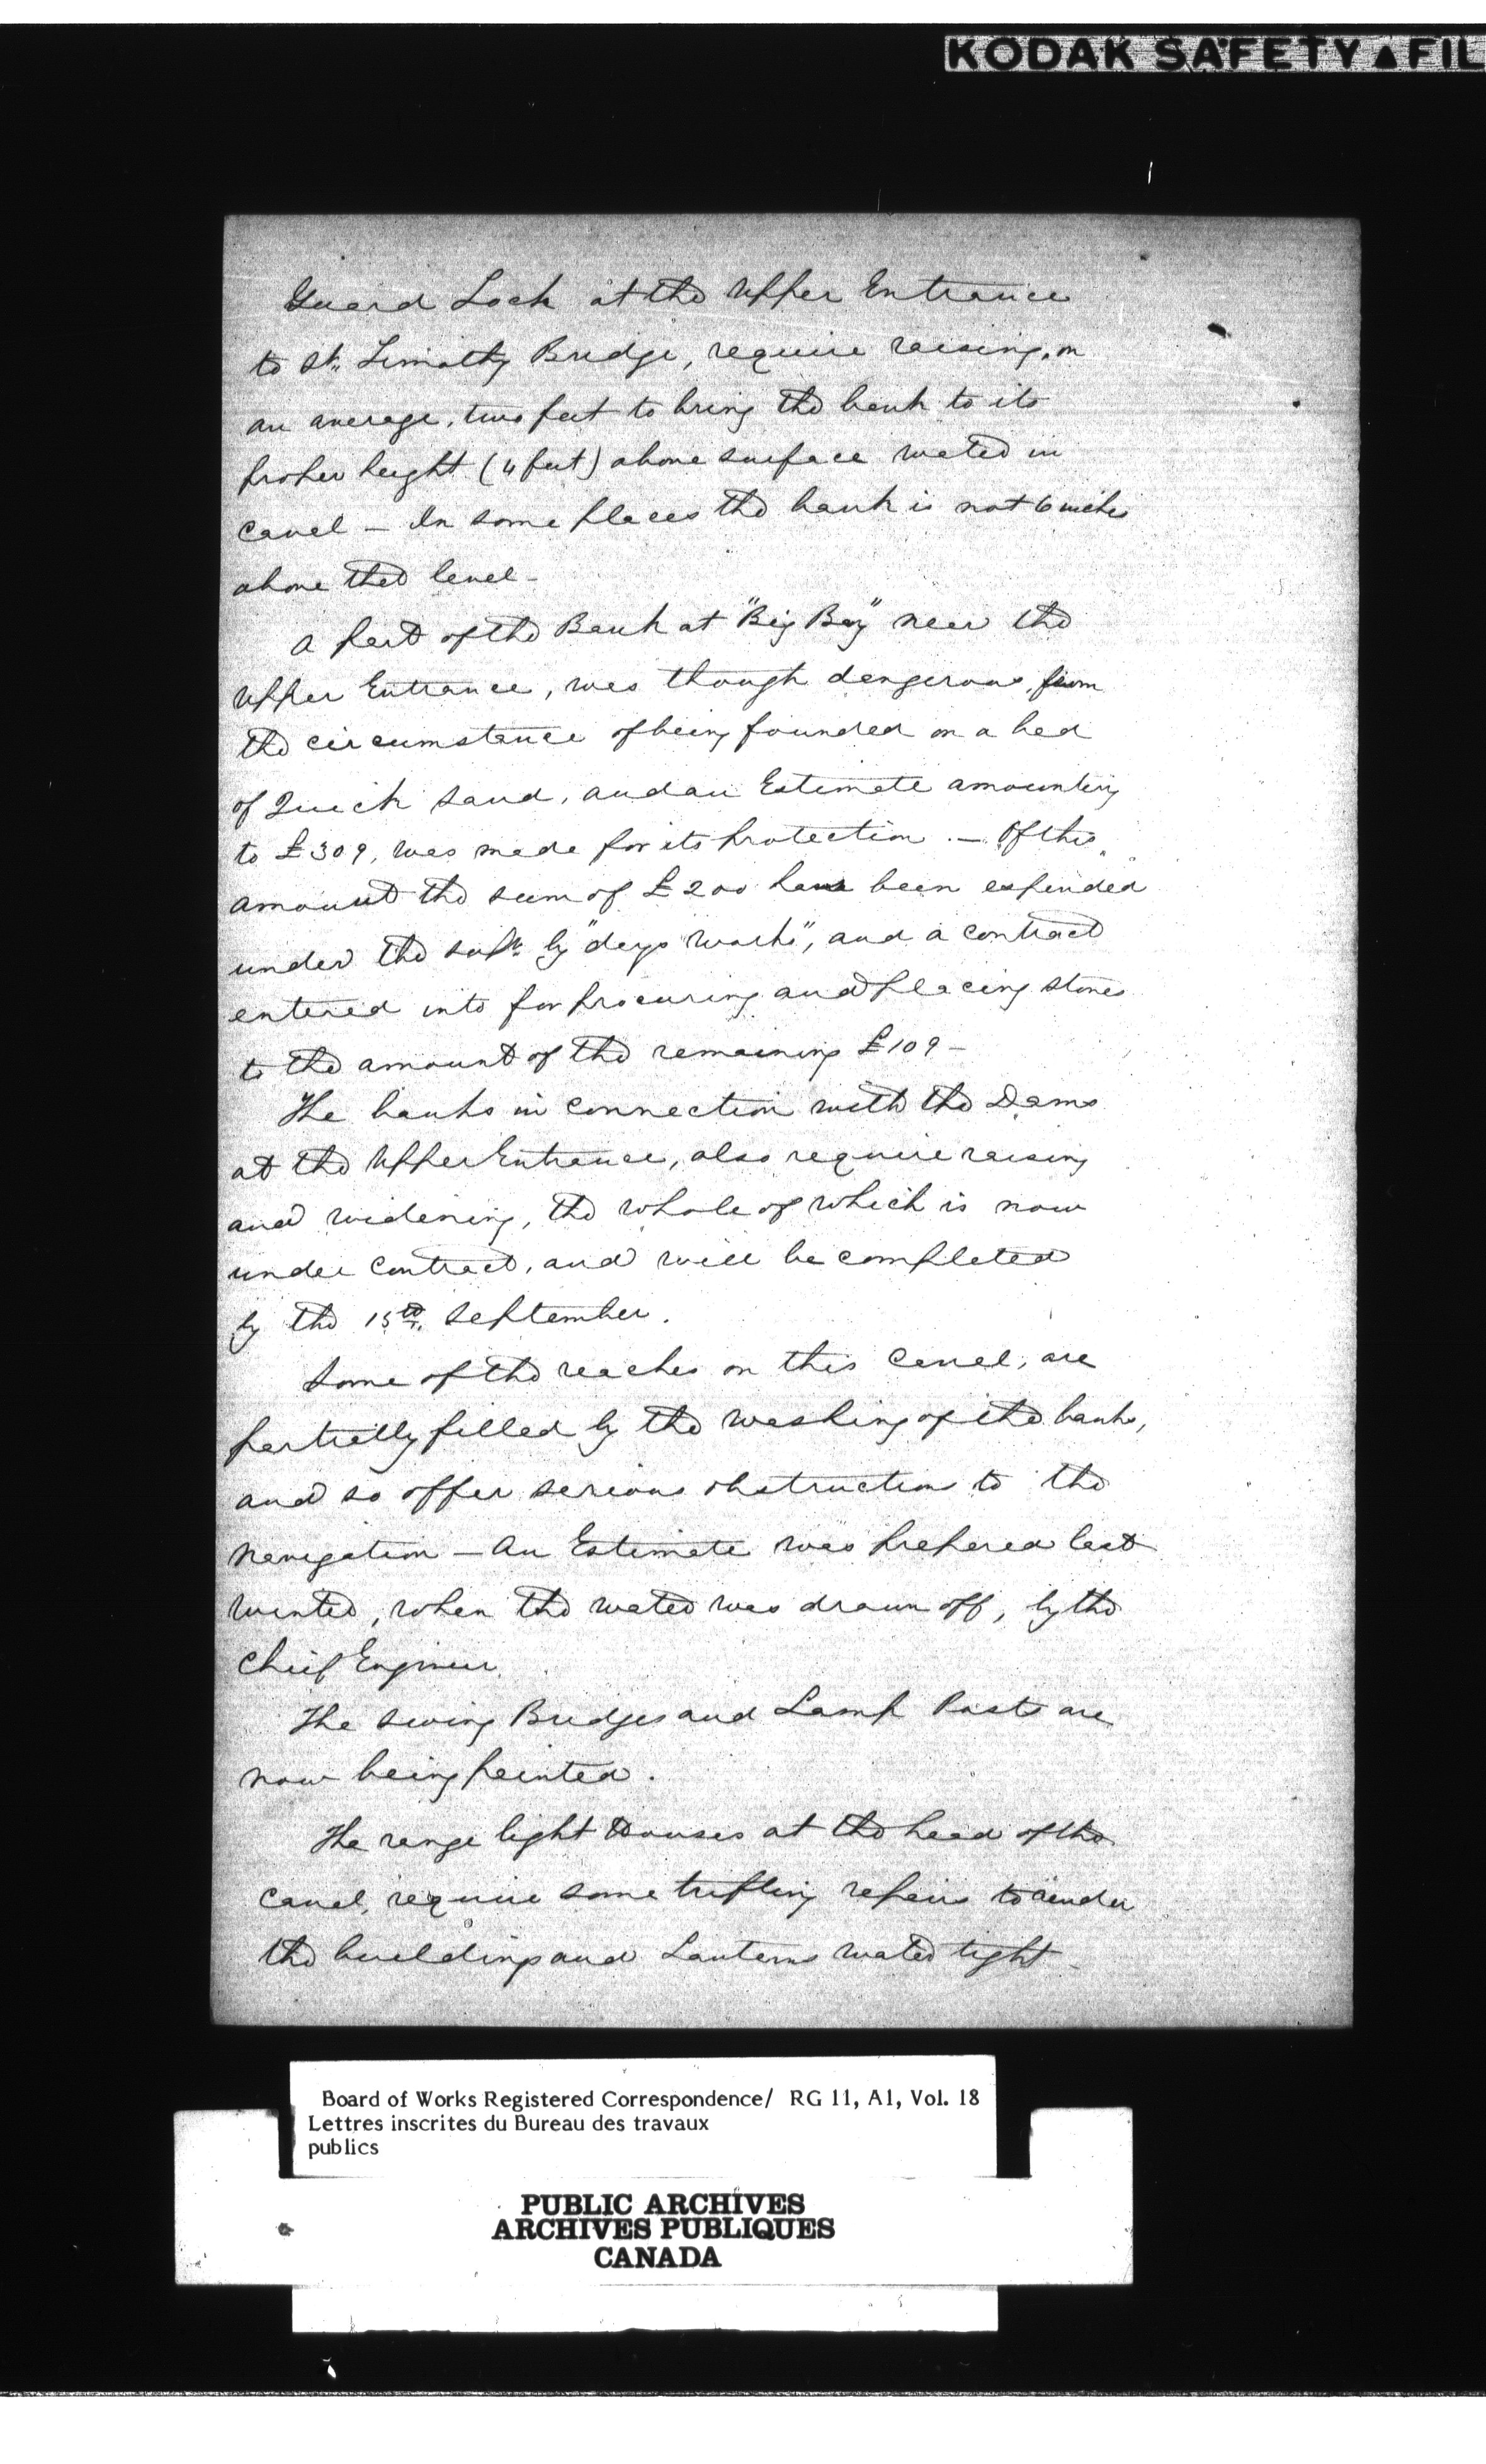 KODAK SAFETY ▲ FIL
Guard Lock at the Upper Entrance
to St. Timothy Bridge, require raising, on
an average, two feet to bring the bank to its
proper height (4 feet) above surface water in
Canal – In some places the bank is not 6 inches
above that level –
A part of the Bank at "Big Bay" near the
Upper Entrance, was though dangerous, from
the circumstance of being founded on a bed
of Quick sand, and an Estimate amounting
to £309, was made for its protection. – Of this
amount the sum of £200 have been expended
under the supt. by "days works", and a contract
entered into for procuring and placing stones
to the amount of the remaining £109 –
The banks in connection with the Dams
at the Upper Entrance, also require raising
and widening, the whole of which is now
under contract, and will be completed
by the 15th. September.
Some of the reaches on this Canal, are
partially filled by the washing of the banks,
and so offer serious obstructions to the
navigation – An Estimate was prepared last
winter, when the water was drawn off, by the
Chief Engineer.
The Swing Bridges and Lamp Posts are
now being painted.
The range light Houses at the head of the
Canal, require some trifling repairs to render
the buildings and Lanterns water tight –
Board of Works Registered Correspondence/ RG 11, A1, Vol. 18
Lettres inscrites du Bureau des travaux
publics
PUBLIC ARCHIVES
ARCHIVES PUBLIQUES
CANADA